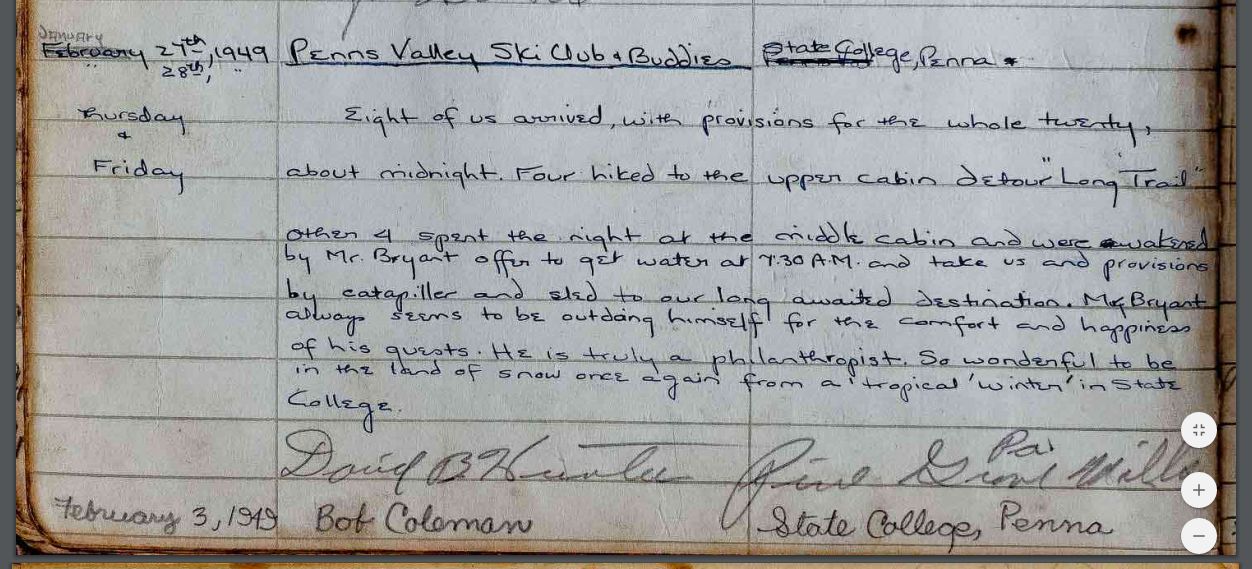 January
February 27th, 1949 Penns Valley Ski Club & Buddies State College, Penna
28th, "
Thursday Eight of us arrived, with provisions for the whole twenty,
&
Friday about midnight. Four hiked to the upper cabin detour "Long Trail"
other 4 spent the night at the middle cabin and were awakened
by Mr. Bryant offer to get water at 7:30 A.M. and take us and provisions
by catapiller and sled to our long awaited destination. Mr. Bryant
always seems to be outdoing himself for the comfort and happiness
of his guests. He is truly a philanthropist. So wonderful to be
in the land of snow once again from a 'tropical 'winter' in State
College.
David B Hunter Pine Grove Mills Pa.
February 3, 1949 Bob Coleman State College, Penna